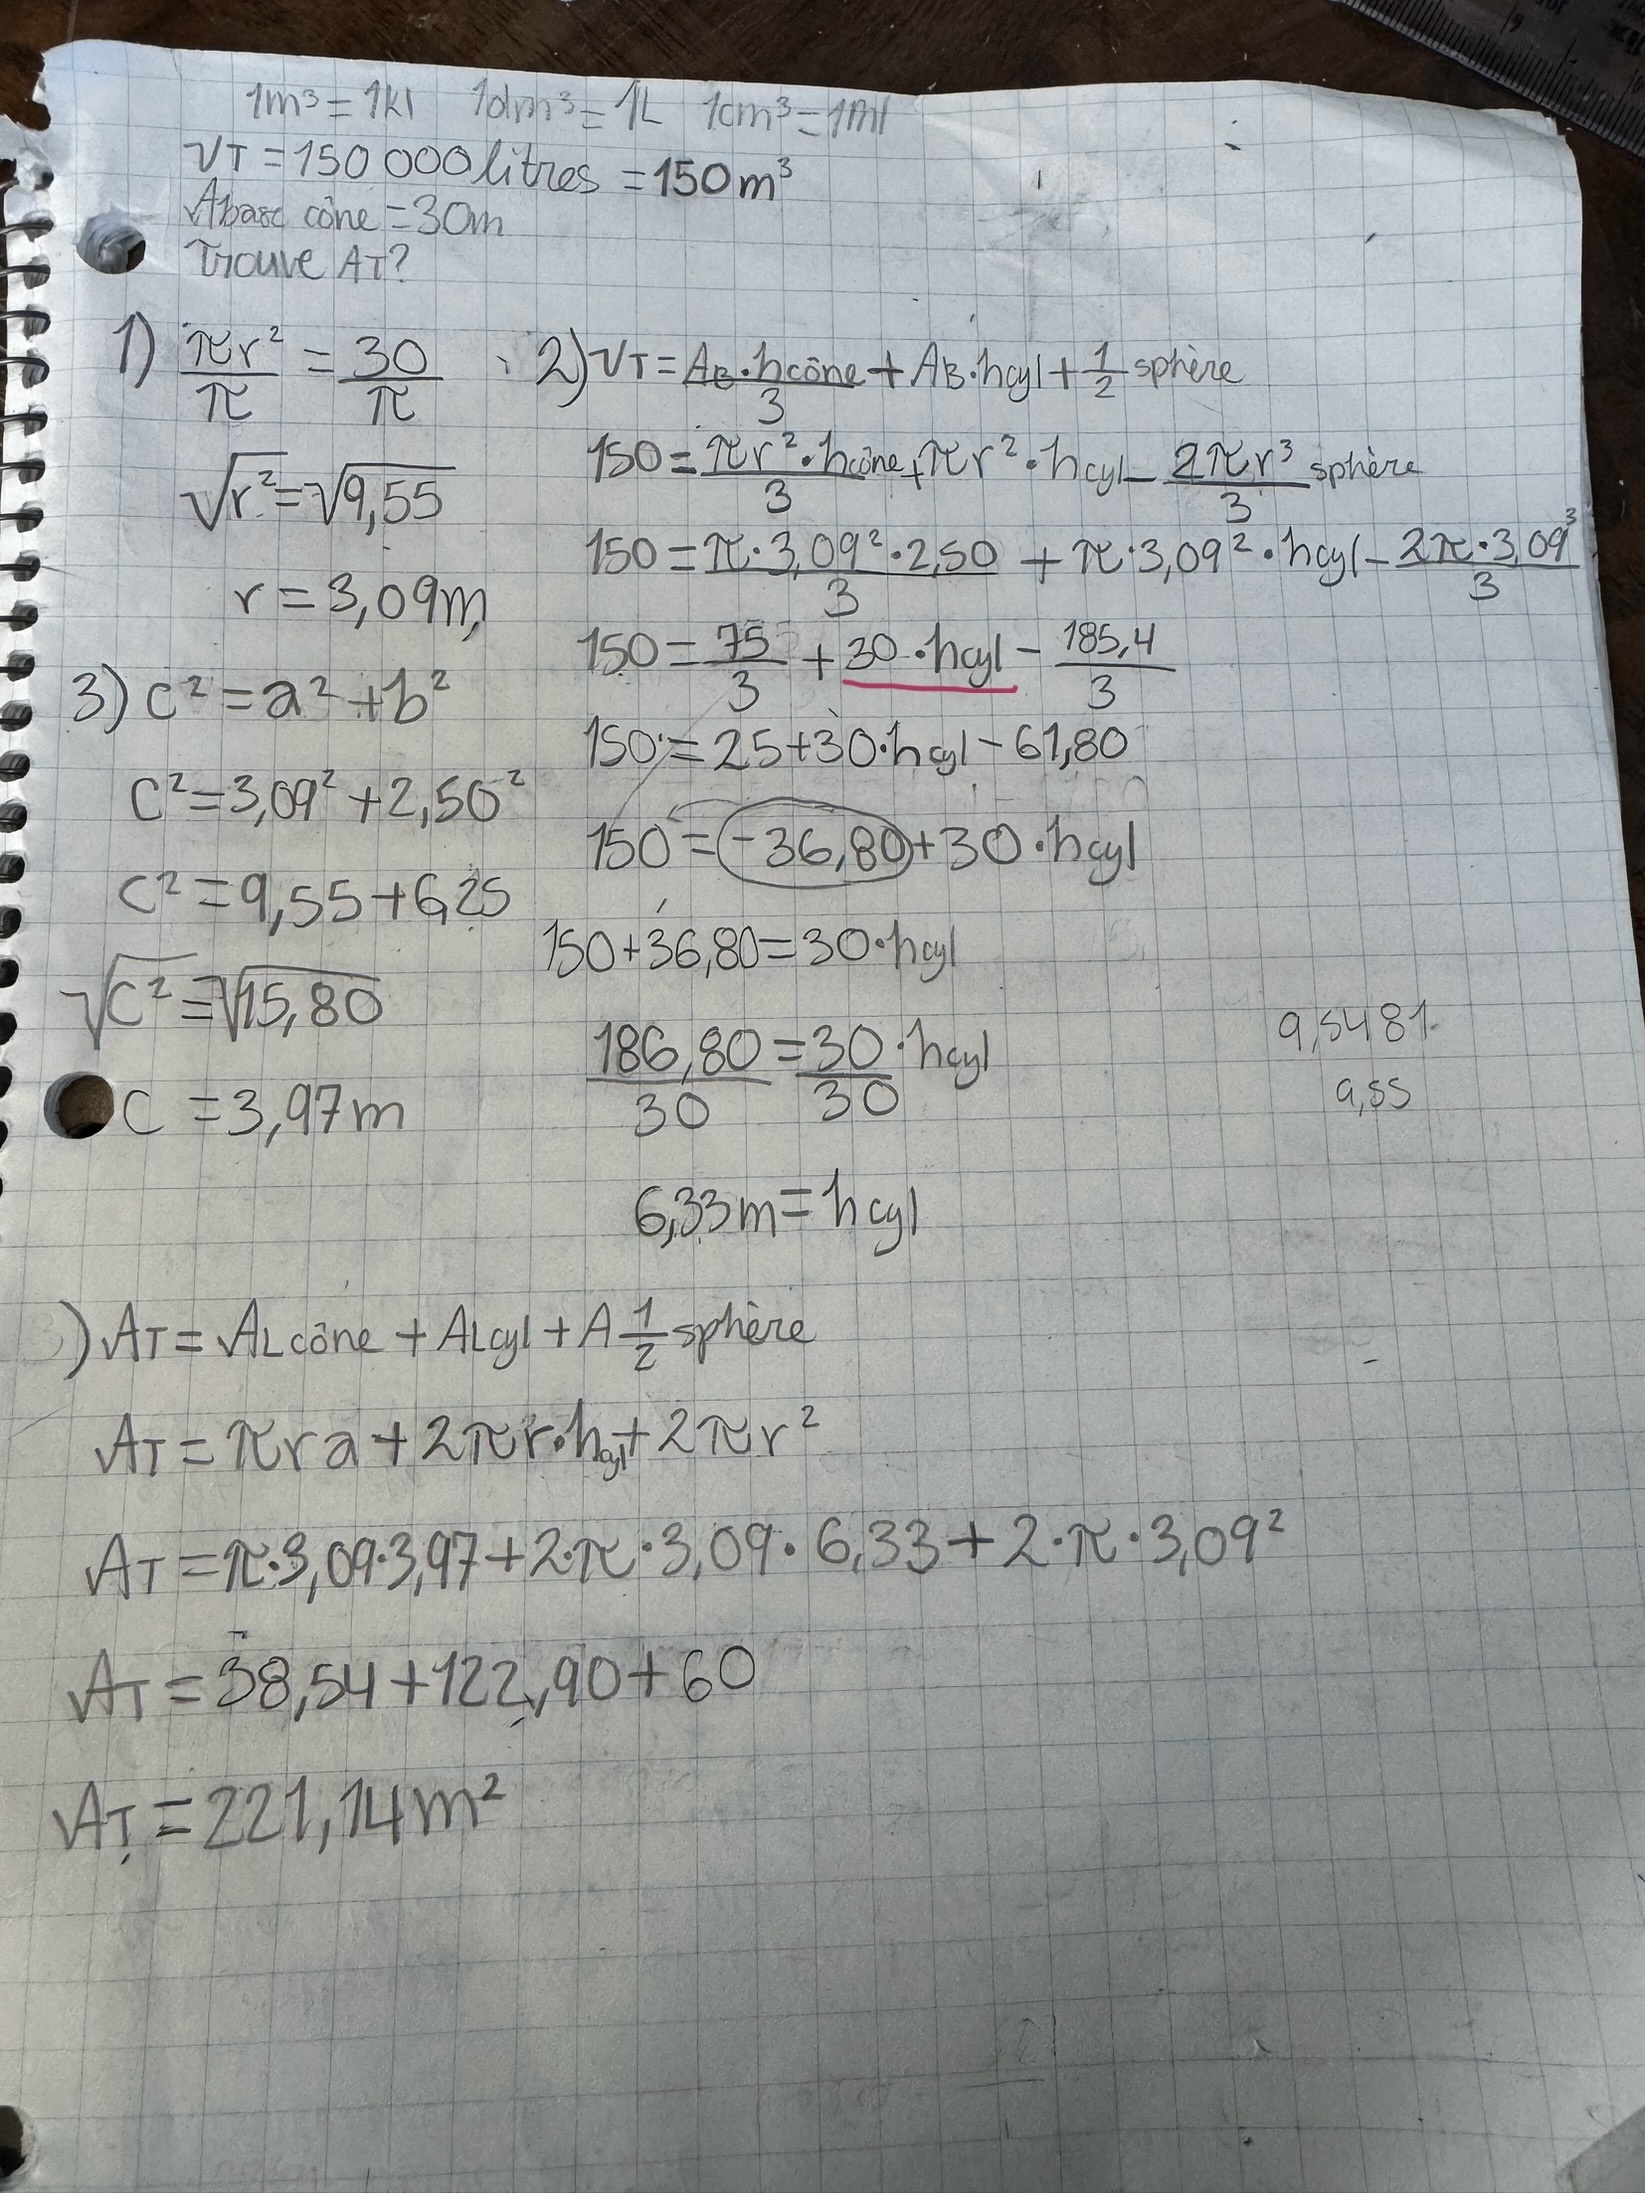 1m³ = 1kl 1dm³ = 1L 1cm³ = 1ml
VT = 150 000 litres = 150 m³
Abase cône = 30m
Trouve AT?
1) πr²/π = 30/π
√r² = √9,55
r = 3,09m
2) VT = AB·hcône/3 + AB·hcyl + 1/2 sphère
150 = πr²·hcône/3 + πr²·hcyl - 2πr³/3 sphère
150 = π·3,09²·2,50/3 + π·3,09²·hcyl - 2π·3,09³/3
150 = 75/3 + 30·hcyl - 185,4/3
150 = 25+30·hcyl - 61,80
150 = -36,80+30·hcyl
150+36,80=30·hcyl
186,80/30 = 30/30·hcyl
6,33m = hcyl
3) c² = a² + b²
c² = 3,09² + 2,50²
c² = 9,55+6,25
√c² = √15,80
c = 3,97m
9,5481
9,55
3) AT = AL cône + ALcyl + A 1/2 sphère
AT = πra + 2πr·hcyl + 2πr²
AT = π·3,09·3,97+2·π·3,09·6,33+2·π·3,09²
AT = 38,54+122,90+60
AT = 221,14m²